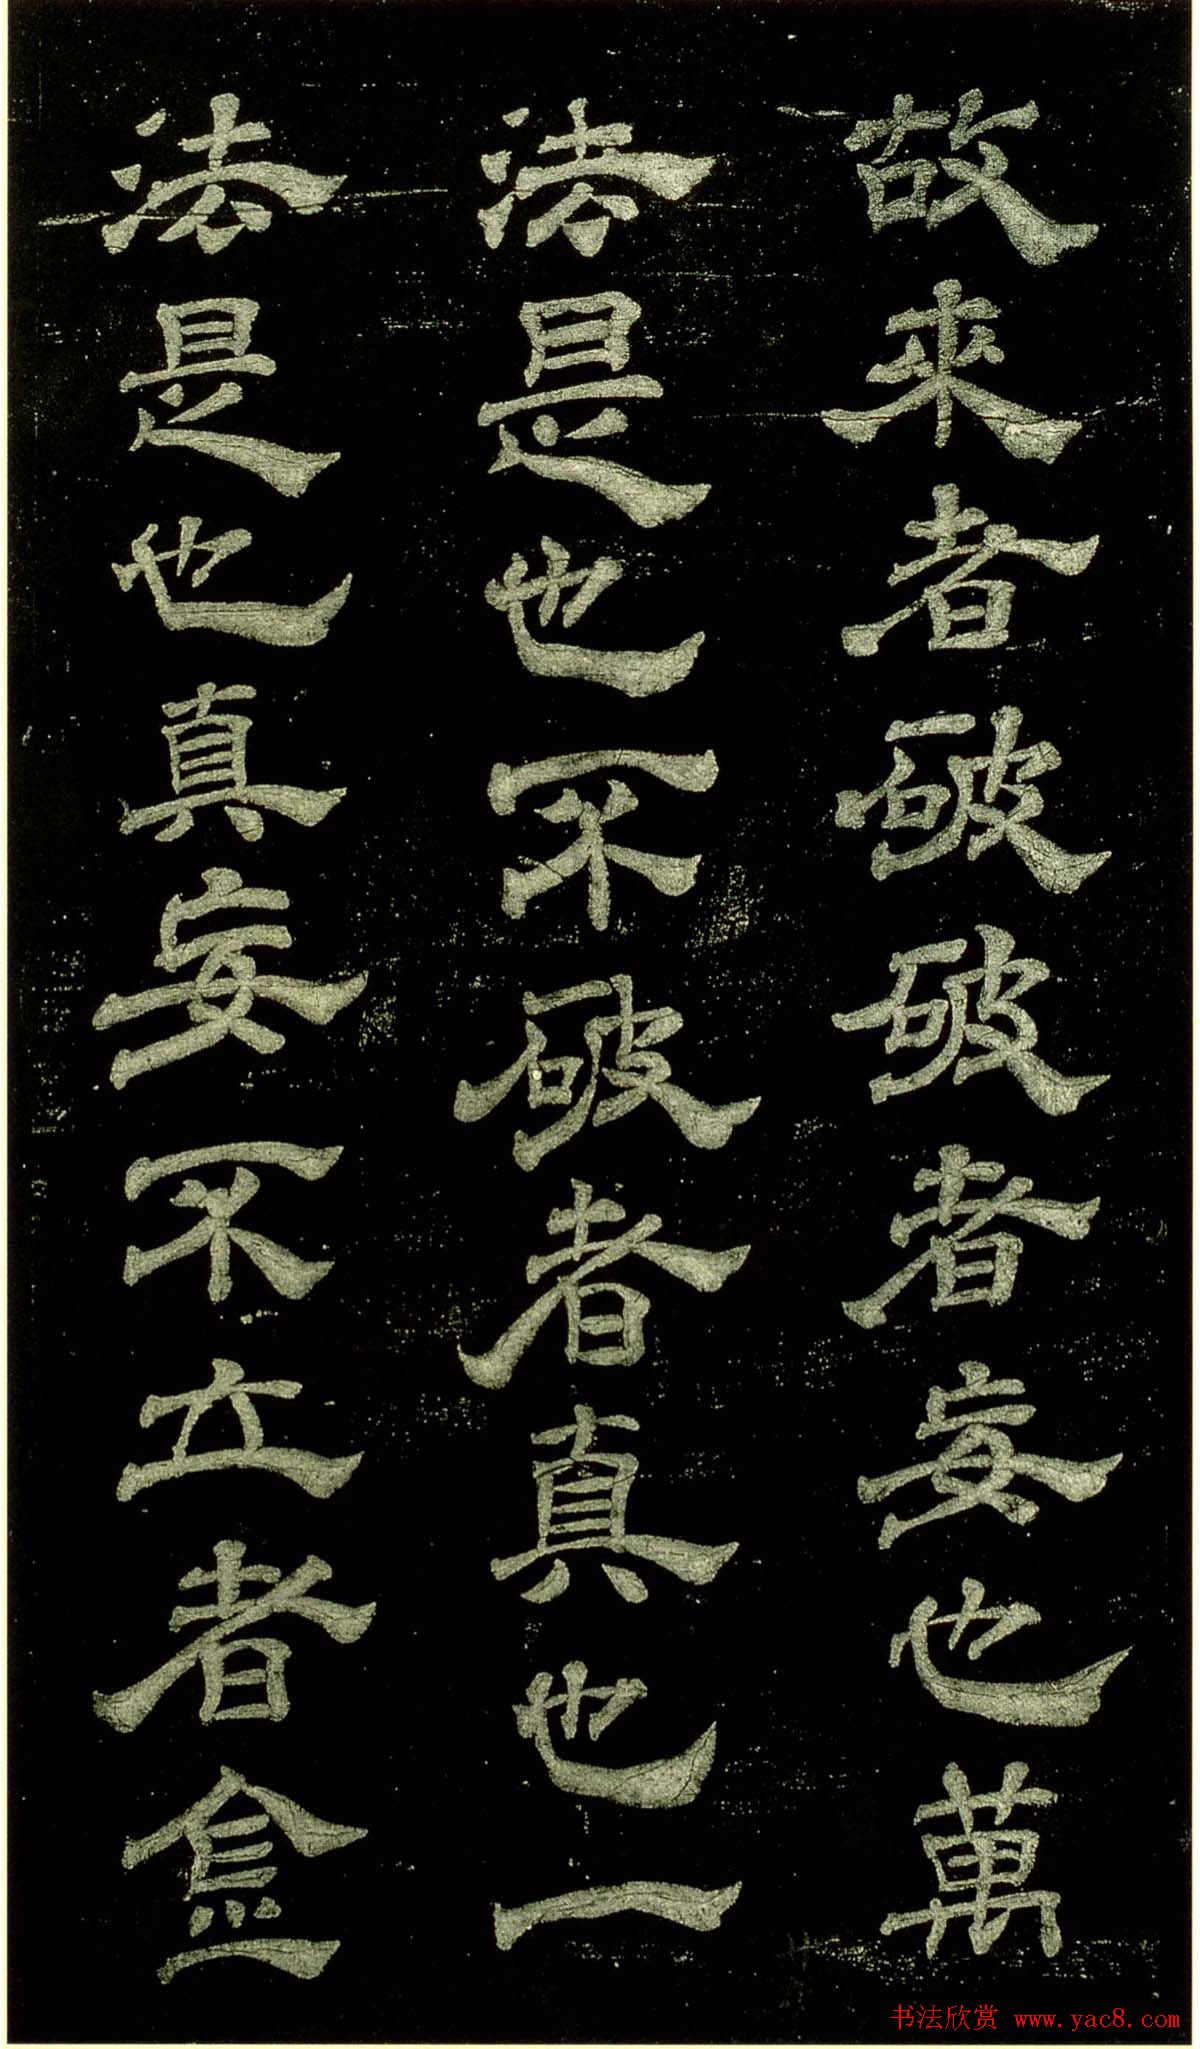 故來者破破者妄也萬
法是也不破者真也一
法是也真妄不立者
书法欣赏 www.yac8.com